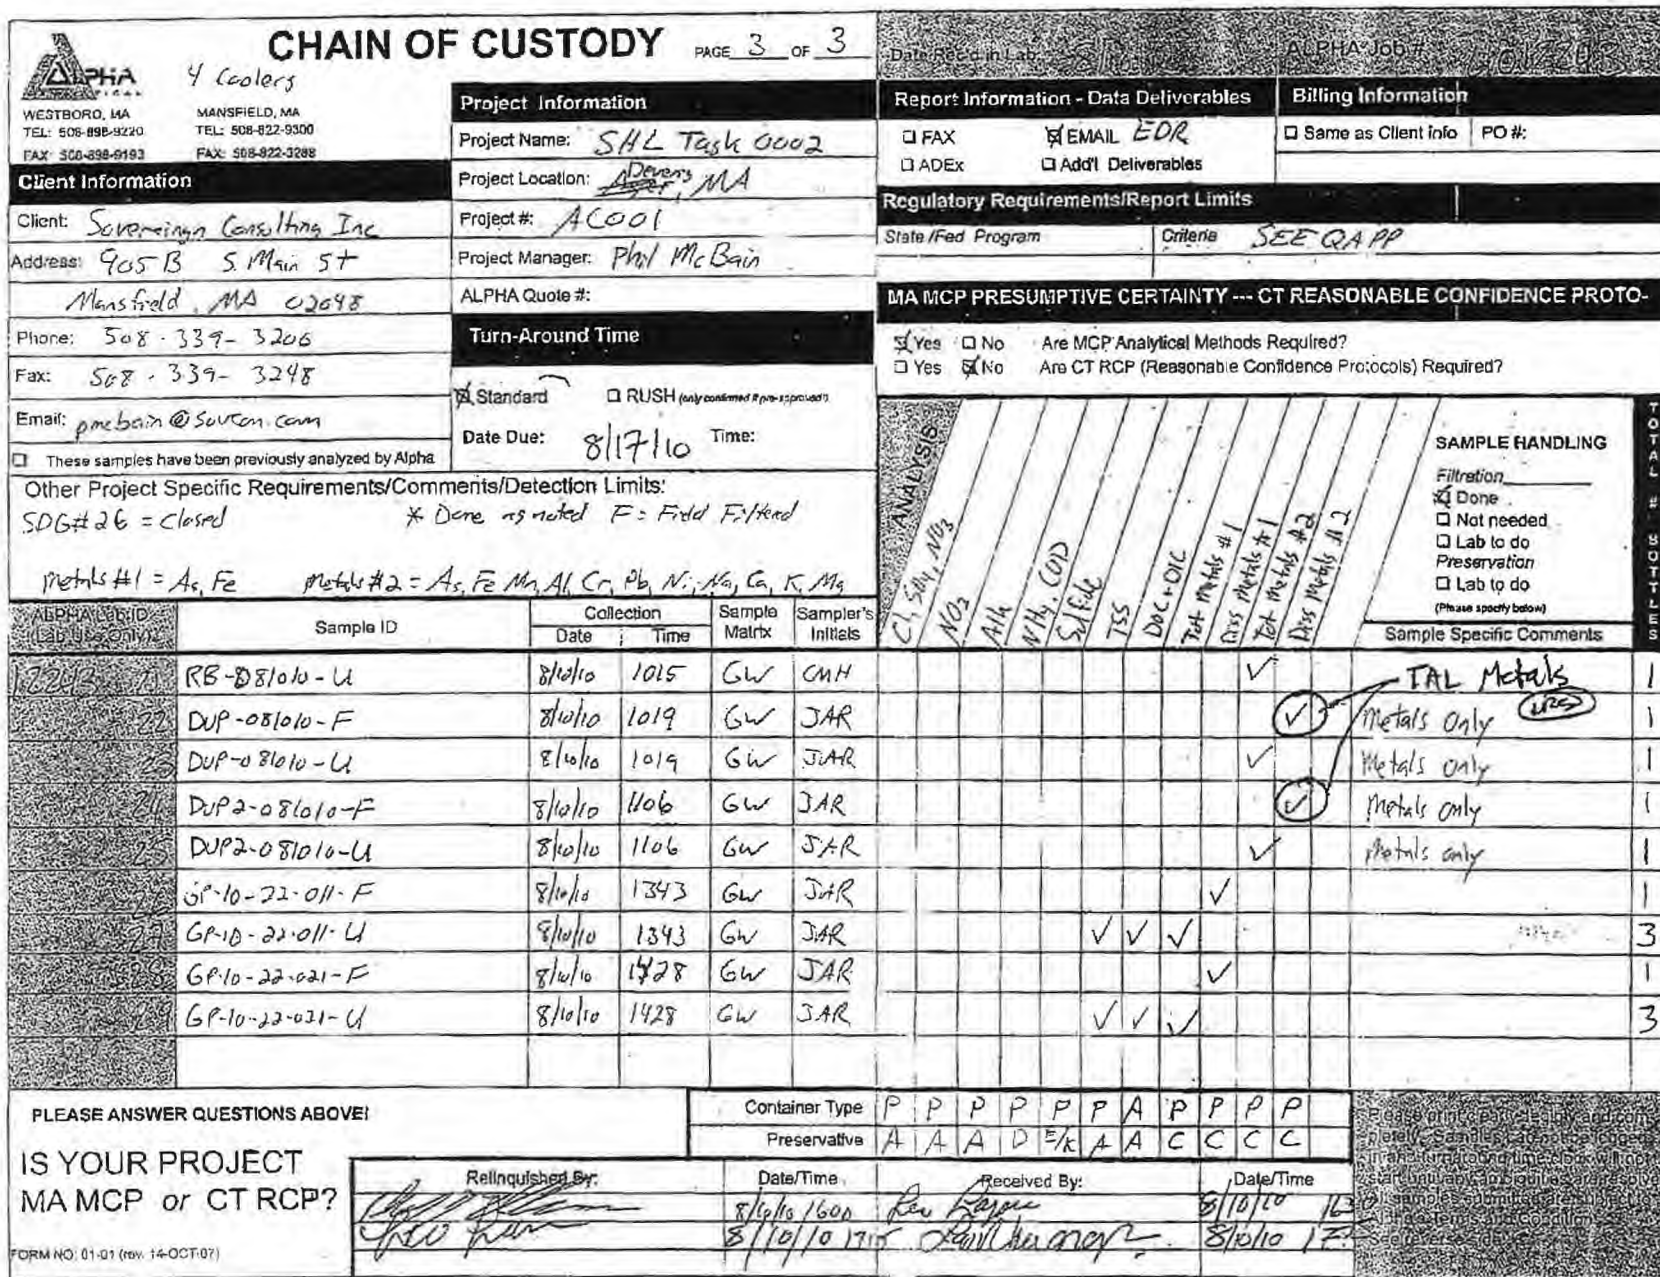 CHAIN OF CUSTODY PAGE 3 OF 3
Date Rec'd in Lab: ALPHA Job #:
ALPHA
4 Coolers
WESTBORO, MA MANSFIELD, MA
TEL: 508-898-9220 TEL: 508-822-9300
FAX: 508-898-9193 FAX: 508-822-3288
Client Information
Client: Sovereign Consulting Inc
Address: 905B S. Main St
Mansfield, MA 02048
Phone: 508-339-3206
Fax: 508-339-3248
Email: pmcbain@sovcon.com
☐ These samples have been previously analyzed by Alpha
Project Information
Project Name: SHL Task 0002
Project Location: Devens, MA
Project #: AC001
Project Manager: Phil McBain
ALPHA Quote #:
Turn-Around Time
☒ Standard ☐ RUSH (only confirmed if pre-approved!)
Date Due: 8/17/10 Time:
Report Information - Data Deliverables
☐ FAX ☒ EMAIL EDR
☐ ADEx ☐ Add'l Deliverables
Billing Information
☐ Same as Client info PO #:
Regulatory Requirements/Report Limits
State/Fed Program Criteria SEE QAPP
MA MCP PRESUMPTIVE CERTAINTY --- CT REASONABLE CONFIDENCE PROTO-
☒ Yes ☐ No Are MCP Analytical Methods Required?
☐ Yes ☒ No Are CT RCP (Reasonable Confidence Protocols) Required?
Other Project Specific Requirements/Comments/Detection Limits:
SDG# 26 = Closed * Done as noted F = Field Filtered
Metals #1 = As, Fe Metals #2 = As, Fe Mn, Al, Cr, Pb, Ni, Na, Ca, K, Mg
ANALYSIS
Cl, SO4, NO3
NO2
Alk
NH4, COD
Sulfide
TSS
DOC+DIC
Tot Metals #1
Diss Metals #1
Tot Metals #2
Diss Metals #2
SAMPLE HANDLING
Filtration
☒ Done
☐ Not needed
☐ Lab to do
Preservation
☐ Lab to do
(Please specify below)
TOTAL # BOTTLES
ALPHA Lab ID (Lab Use Only) Sample ID Collection Date Time Sample Matrix Sampler's Initials Sample Specific Comments
12243 21 RB-081010-U 8/10/10 1015 GW CMH ✓ TAL Metals 1
22 DUP-081010-F 8/10/10 1019 GW JAR ✓ Metals Only 1
23 DUP-081010-U 8/10/10 1019 GW JAR ✓ Metals only 1
24 DUP2-081010-F 8/10/10 1106 GW JAR ✓ Metals only 1
25 DUP2-081010-U 8/10/10 1106 GW JAR ✓ Metals only 1
GP-10-22-011-F 8/10/10 1343 GW JAR ✓ 1
27 GP-10-22-011-U 8/10/10 1343 GW JAR ✓ ✓ ✓ 3
28 GP-10-22-021-F 8/10/10 1428 GW JAR ✓ 1
29 GP-10-22-021-U 8/10/10 1428 GW JAR ✓ ✓ ✓ 3
PLEASE ANSWER QUESTIONS ABOVE!
IS YOUR PROJECT
MA MCP or CT RCP?
FORM NO: 01-01 (rev. 14-OCT-07)
Container Type P P P P P P A P P P P
Preservative A A A D E/K A A C C C C
Relinquished By: Date/Time Received By: Date/Time
8/10/10 1600 8/10/10
8/10/10 1715 8/10/10